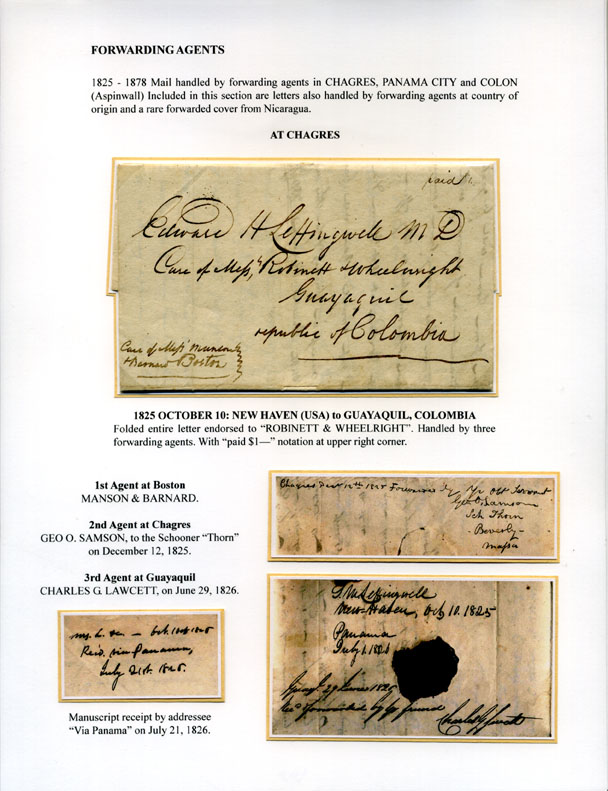 FORWARDING AGENTS
1825 - 1878 Mail handled by forwarding agents in CHAGRES, PANAMA CITY and COLON
(Aspinwall) Included in this section are letters also handled by forwarding agents at country of
origin and a rare forwarded cover from Nicaragua.
AT CHAGRES
paid
Edward H Leffingwell M D
Care of Messrs Robinett & Wheelwright
Guayaquil
republic of Colombia
Care of Messrs Munson
& Barnard Boston
1825 OCTOBER 10: NEW HAVEN (USA) to GUAYAQUIL, COLOMBIA
Folded entire letter endorsed to “ROBINETT & WHEELRIGHT”. Handled by three
forwarding agents. With “paid $1—” notation at upper right corner.
1st Agent at Boston
MANSON & BARNARD.
2nd Agent at Chagres
GEO O. SAMSON, to the Schooner “Thorn”
on December 12, 1825.
3rd Agent at Guayaquil
CHARLES G. LAWCETT, on June 29, 1826.
Chagres Decr 12th 1825 Forwarded by Yr Obt Servant
Geo O Samson
Sch Thorn
Beverly
Massa
Recd. via Panama,
July 21st.
Leffingwell
New Haven, Oct 10. 1825
Panama
July 1.
Guayl. 29 June
forwarded by
Manuscript receipt by addressee
“Via Panama” on July 21, 1826.